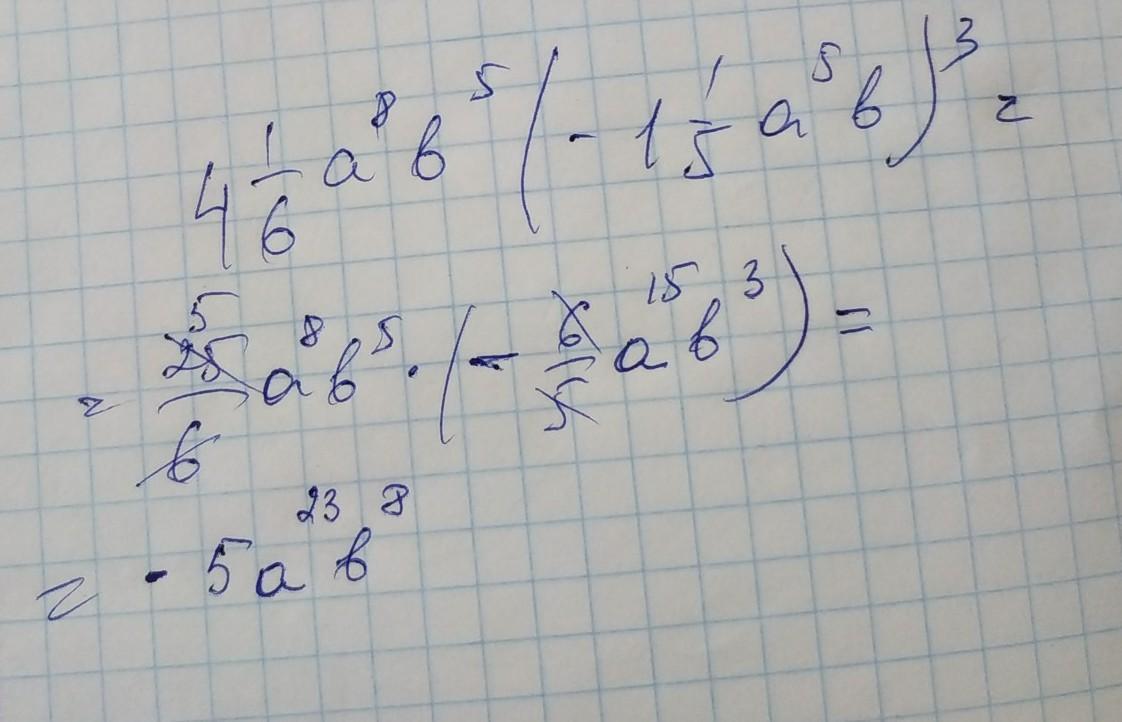 4 1/6 a⁸ b⁵ (- 1 1/5 a⁵ b)³ =
= 25/6 5 a⁸ b⁵ · (- 6/5 a¹⁵ b³) =
= - 5 a²³ b⁸